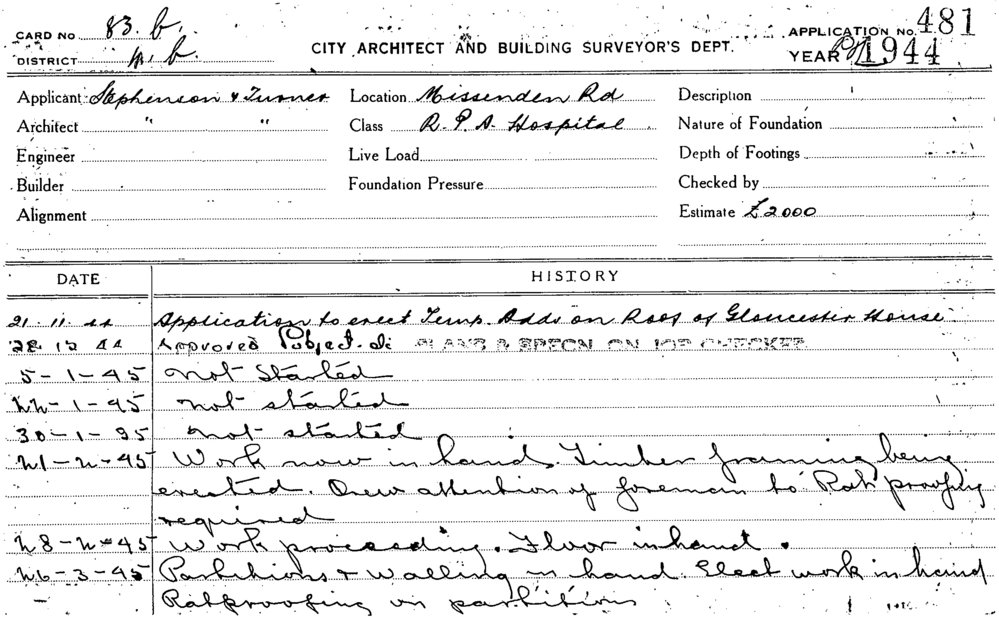 CARD No 83. b.
DISTRICT N. b.
CITY ARCHITECT AND BUILDING SURVEYOR'S DEPT.
APPLICATION No. 481
YEAR 1944
Applicant Stephenson & Turner
Location Missenden Rd
Description
Architect " "
Class R. P. A. Hospital
Nature of Foundation
Engineer
Live Load
Depth of Footings
Builder
Foundation Pressure
Checked by
Alignment
Estimate £2000
DATE HISTORY
21. 11. 44 Application to erect Temp. Adds on Roof of Gloucester House
28 12 44 Approved Subject to PLANS & SPECN. ON JOB CHECKED
5-1-45 not started
22-1-45 not started
30-1-45 not started
21-2-45 Work now in hand. Timber framing being
erected. Drew attention of foreman to Rat proofing
required
28-2-45 Work proceeding. Floor in hand.
26-3-45 Partitions & walling in hand. Elect work in hand
Ratproofing in partitions